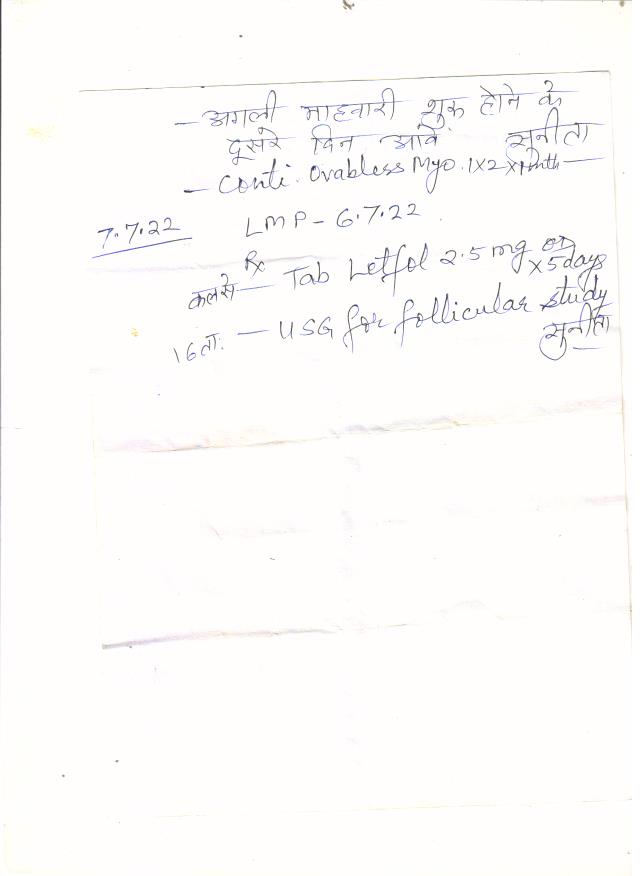 - अगली माहवारी शुरू होने के
दूसरे दिन आवें. सुनीता
- Conti. Ovabless Myo. 1x2 x 1 month
7.7.22 LMP - 6.7.22.
Rx
कलसे Tab Letfol 2.5 mg OD x 5 days
16 ता: - USG for follicular study
सुनीता